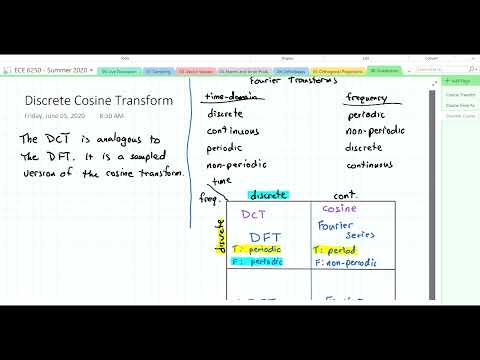 Tools
Display
Edit
Convert
ECE 6250 - Summer 2020
04 Sampling
Add Page
Discrete Cosine Transform
Friday, June 05, 2020 8:30 AM
The DCT is analogous to
the DFT. It is a sampled
version of the cosine transform.
Fourier Transforms
time-domain frequency
discrete periodic
continuous non-periodic
periodic discrete
non-periodic continuous
time
freq. discrete cont.
discrete
DCT cosine
DFT Fourier
Series
T: periodic T: period
F: periodic F: non-periodic